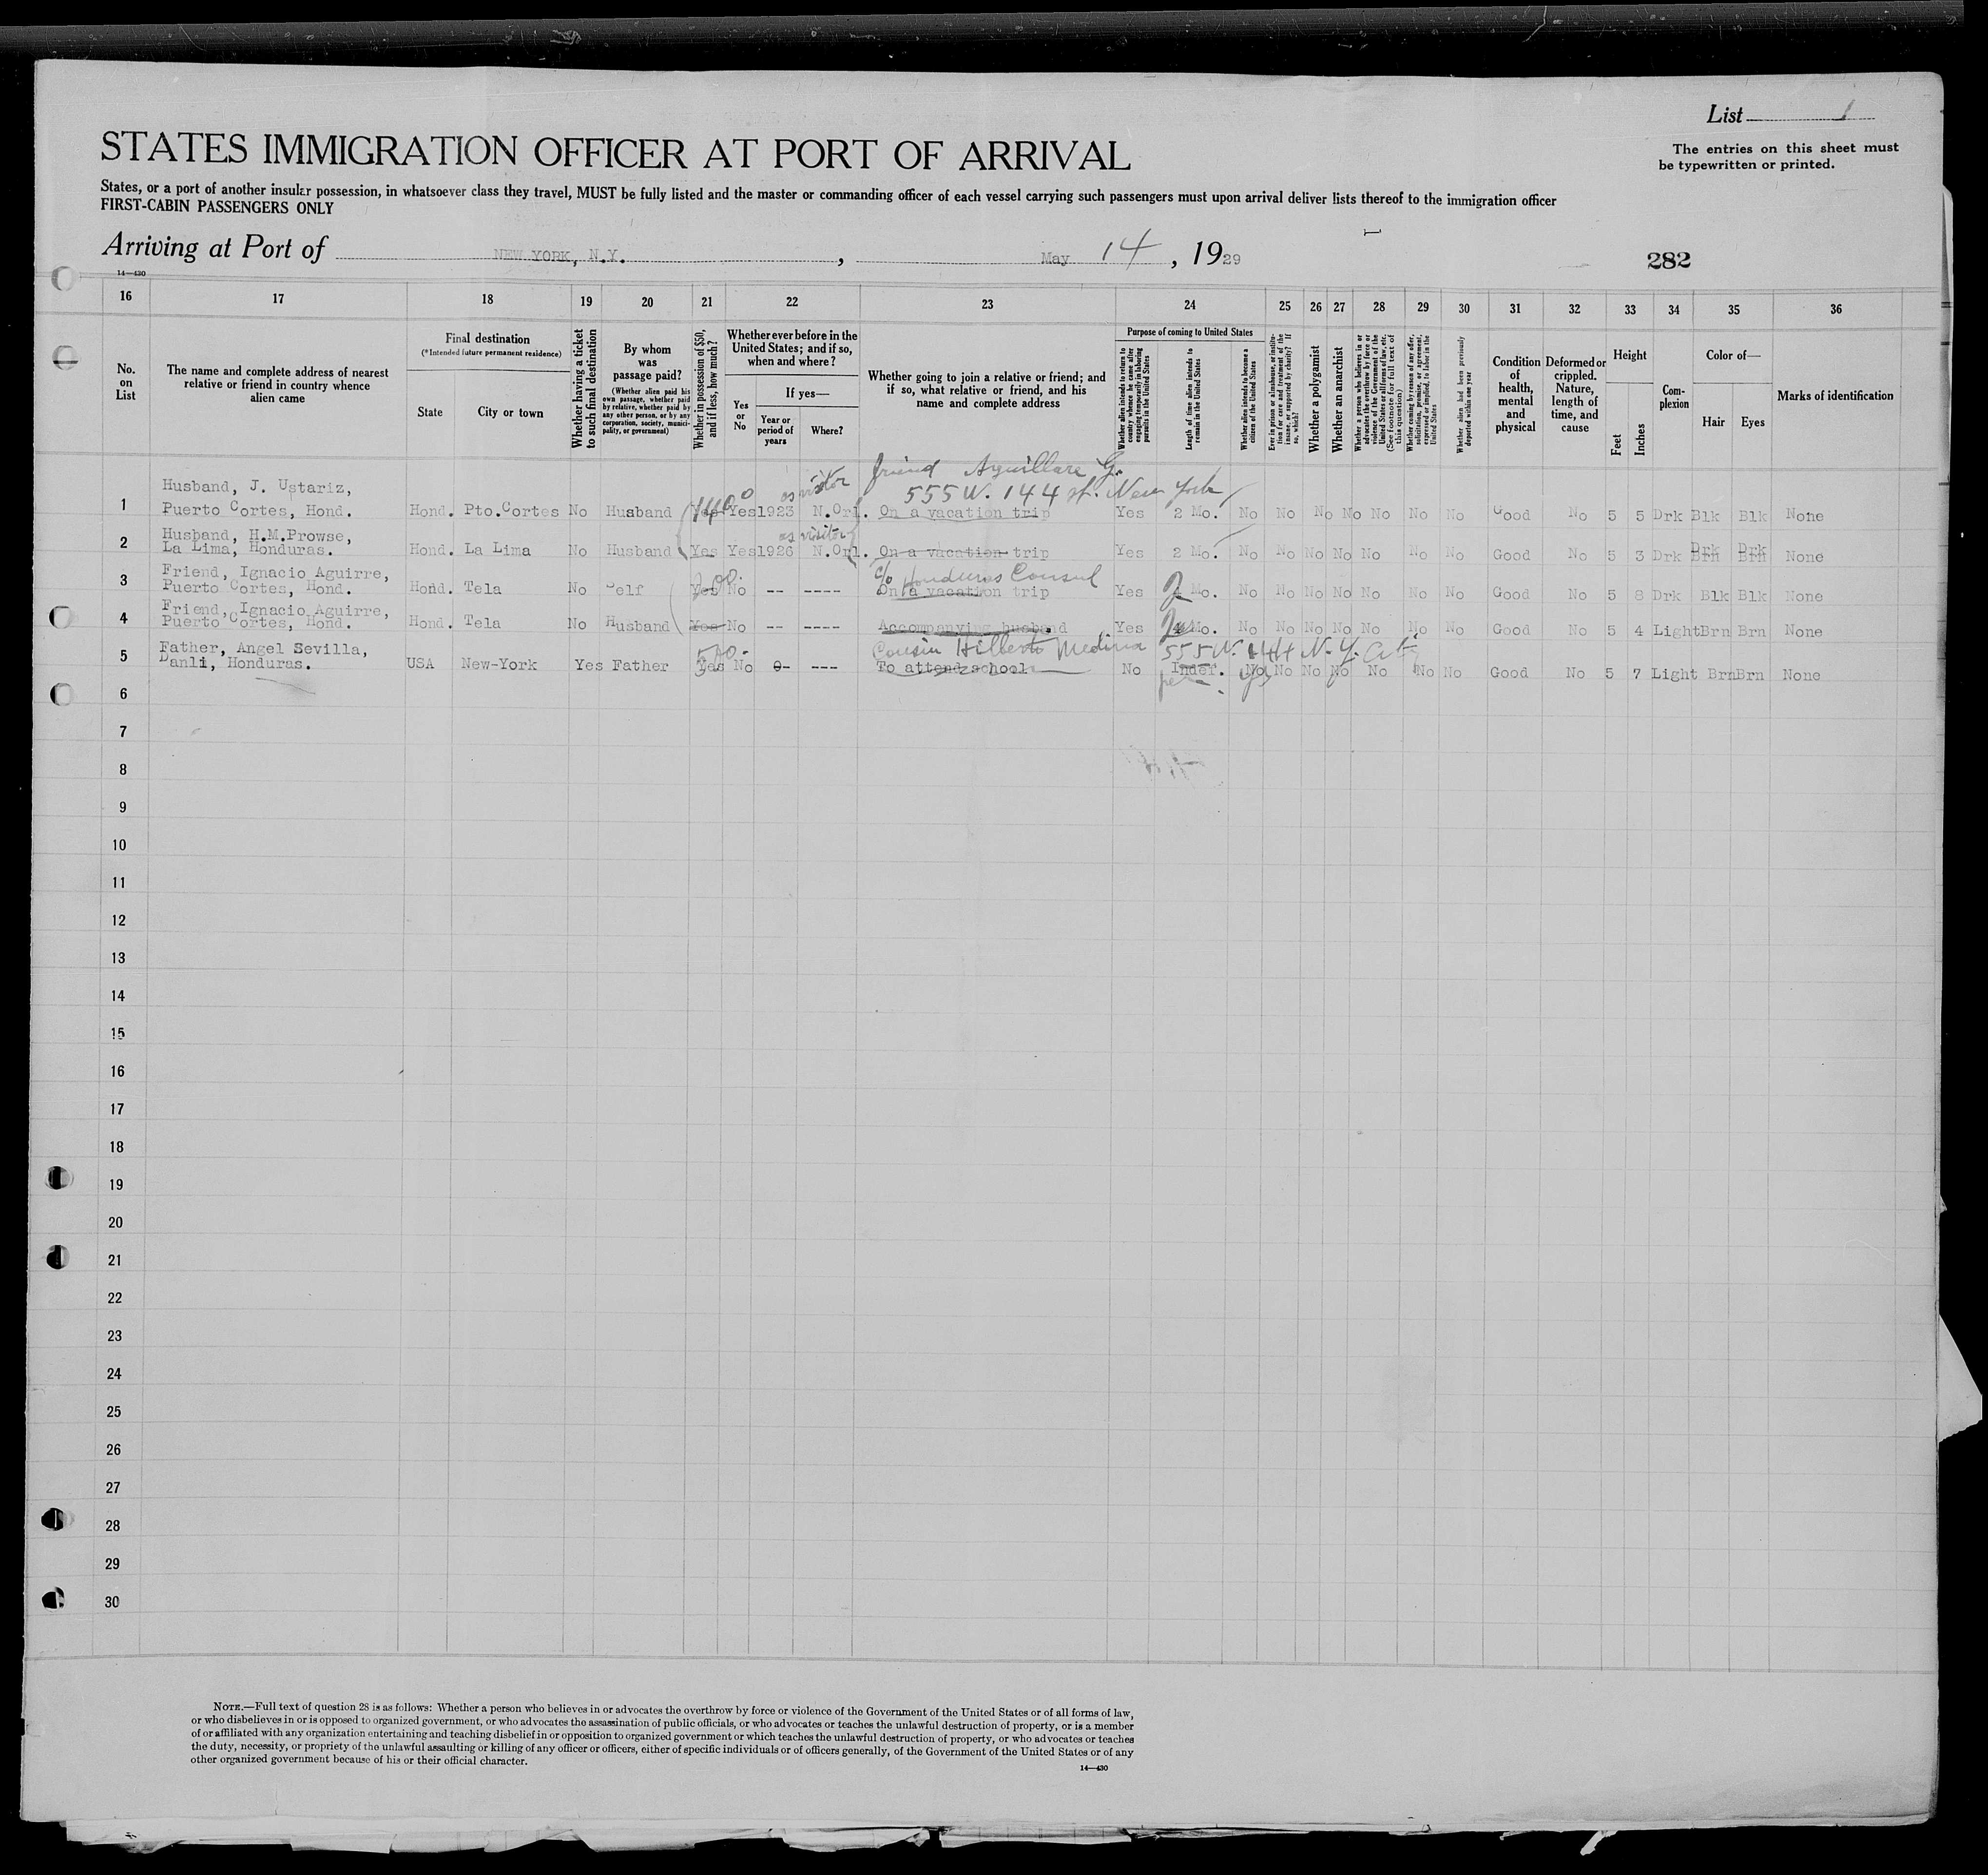 List 1
STATES IMMIGRATION OFFICER AT PORT OF ARRIVAL
The entries on this sheet must
be typewritten or printed.
States, or a port of another insular possession, in whatsoever class they travel, MUST be fully listed and the master or commanding officer of each vessel carrying such passengers must upon arrival deliver lists thereof to the immigration officer
FIRST-CABIN PASSENGERS ONLY
Arriving at Port of NEW YORK, N.Y. , May 14 , 1929
282
14—430
16 17 18 19 20 21 22 23 24 25 26 27 28 29 30 31 32 33 34 35 36
No.
on
List
The name and complete address of nearest
relative or friend in country whence
alien came
Final destination
(*Intended future permanent residence)
State
City or town
Whether having a ticket
to such final destination
By whom
was
passage paid?
(Whether alien paid his
own passage, whether paid
by relative, whether paid by
any other person, or by any
corporation, society, munici-
pality, or government)
Whether in possession of $50,
and if less, how much?
Whether ever before in the
United States; and if so,
when and where?
If yes—
Yes
or
No
Year or
period of
years
Where?
Whether going to join a relative or friend; and
if so, what relative or friend, and his
name and complete address
Purpose of coming to United States
Whether alien intends to return to
country whence he came after
engaging temporarily in laboring
pursuits in the United States
Length of time alien intends to
remain in the United States
Whether alien intends to become a
citizen of the United States
Ever in prison or almshouse, or institu-
tion for care and treatment of the
insane, or supported by charity? If
so, which?
Whether a polygamist
Whether an anarchist
Whether a person who believes in or
advocates the overthrow by force or
violence of the Government of the
United States or all forms of law, etc.
(See footnote for full text of
this question)
Whether coming by reason of any offer,
solicitation, promise, or agreement,
expressed or implied, to labor in the
United States
Whether alien had been previously
deported within one year
Condition
of
health,
mental
and
physical
Deformed or
crippled.
Nature,
length of
time, and
cause
Height
Feet
Inches
Com-
plexion
Color of—
Hair
Eyes
Marks of identification
friend Aguillare G.
as visitor
555 W. 144 st. New York
Husband, J. Ustariz,
1 Puerto Cortes, Hond. Hond. Pto.Cortes No Husband Yes Yes 1923 N.Orl. On a vacation trip Yes 2 Mo. No No No No No No No Good No 5 5 Drk Blk Blk None
as visitor
Husband, H.M.Prowse,
2 La Lima, Honduras. Hond. La Lima No Husband Yes Yes 1926 N.Orl. On a vacation trip Yes 2 Mo. No No No No No No No Good No 5 3 Drk Brn Drk Brn Drk None
c/o Honduras Consul
Friend, Ignacio Aguirre,
3 Puerto Cortes, Hond. Hond. Tela No Self Yes No -- ---- On a vacation trip Yes 2 Mo. No No No No No No No Good No 5 8 Drk Blk Blk None
Friend, Ignacio Aguirre,
4 Puerto Cortes, Hond. Hond. Tela No Husband Yes No -- ---- Accompanying husband Yes 2 Mo. No No No No No No No Good No 5 4 Light Brn Brn None
500.- Cousin Hilberto Medina 555 W. 144 N.Y. City
Father, Angel Sevilla,
5 Danli, Honduras. USA New-York Yes Father Yes No 0- --- To attend school No Indef. No No No No No No No Good No 5 7 Light Brn Brn None
6
7
8
9
10
11
12
13
14
15
16
17
18
19
20
21
22
23
24
25
26
27
28
29
30
NOTE.—Full text of question 28 is as follows: Whether a person who believes in or advocates the overthrow by force or violence of the Government of the United States or of all forms of law,
or who disbelieves in or is opposed to organized government, or who advocates the assassination of public officials, or who advocates or teaches the unlawful destruction of property, or is a member
of or affiliated with any organization entertaining and teaching disbelief in or opposition to organized government or which teaches the unlawful destruction of property, or who advocates or teaches
the duty, necessity, or propriety of the unlawful assaulting or killing of any officer or officers, either of specific individuals or of officers generally, of the Government of the United States or of any
other organized government because of his or their official character.
14—430